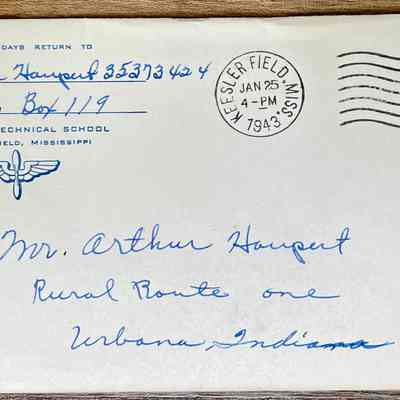 DAYS RETURN TO
Haupert 35373424
Box 119
TECHNICAL SCHOOL
IELD, MISSISSIPPI
KEESLER FIELD. MISS.
JAN 25
4-PM
1943
Mr. Arthur Haupert
Rural Route one
Urbana, Indiana